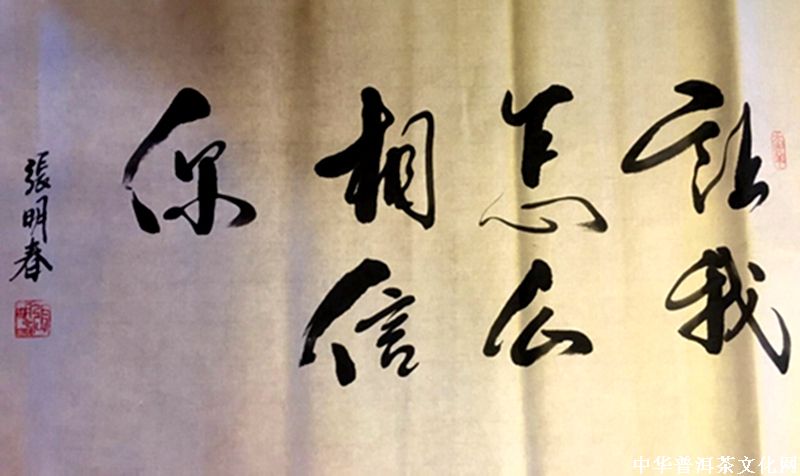 让我
怎么
相信
你
張明春
中华普洱茶文化网